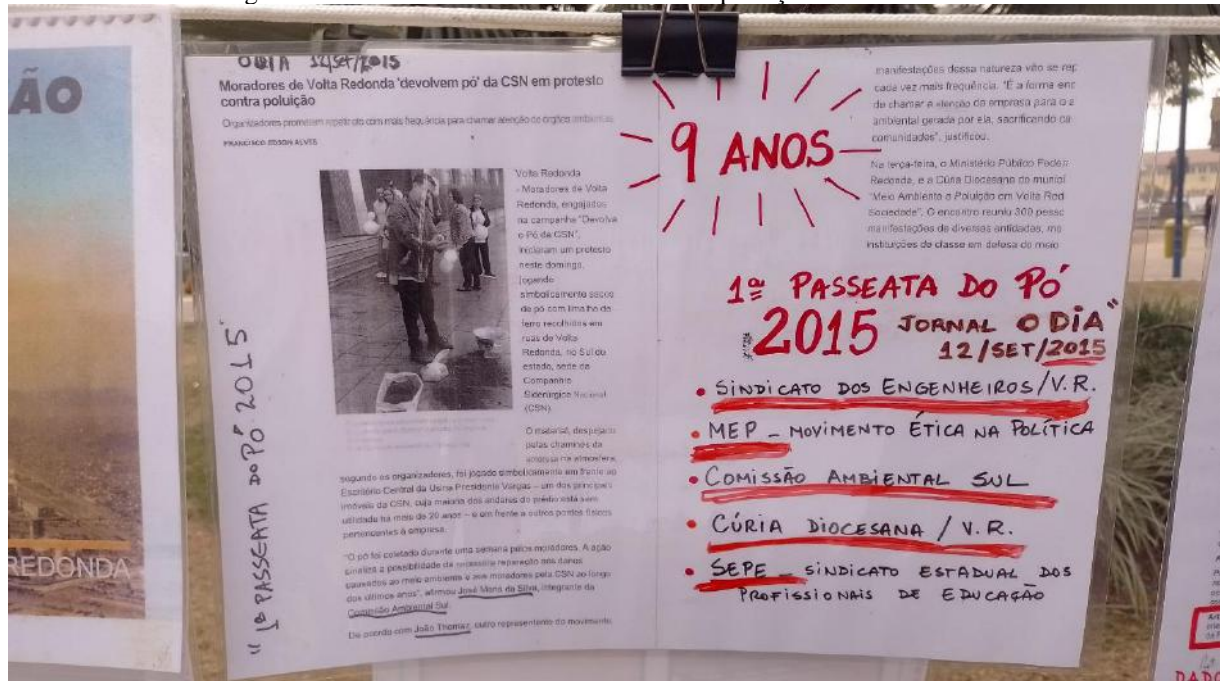 ÃO
REDONDA
O DIA 12/SET/2015
Moradores de Volta Redonda 'devolvem pó' da CSN em protesto
contra poluição
Organizadores prometem repetir ato com mais frequência para chamar atenção de órgãos ambientais
FRANCISCO EDSON ALVES
Volta Redonda
- Moradores de Volta
Redonda, engajados
na campanha "Devolva
o Pó da CSN",
iniciaram um protesto
neste domingo,
jogando
simbolicamente sacos
de pó com limalha de
ferro recolhidos em
ruas de Volta
Redonda, no Sul do
estado, sede da
Companhia
Siderúrgica Nacional
(CSN).
O material, despejado
pelas chaminés da
empresa na atmosfera,
segundo os organizadores, foi jogado simbolicamente em frente ao
Escritório Central da Usina Presidente Vargas – um dos principais
imóveis da CSN, cuja maioria dos andares do prédio está sem
utilidade há mais de 20 anos – e em frente a outros pontos físicos
pertencentes à empresa.
"O pó foi coletado durante uma semana pelos moradores. A ação
sinaliza a possibilidade da necessária reparação nos danos
causados ao meio ambiente e aos moradores pela CSN ao longo
dos últimos anos", afirmou José Maria da Silva, integrante da
Comissão Ambiental Sul.
De acordo com João Thomaz, outro representante do movimento,
"1ª PASSEATA DO PÓ 2015"
9 ANOS
manifestações dessa natureza vão se rep
cada vez mais frequência. "É a forma enc
de chamar a atenção da empresa para o a
ambiental gerada por ela, sacrificando da
comunidades", justificou.
Na terça-feira, o Ministério Público Feder
Redonda, e a Cúria Diocesana do municí
"Meio Ambiente e Poluição em Volta Red
Sociedade". O encontro reuniu 300 pesso
manifestações de diversas entidades, mo
instituições de classe em defesa do meio
1ª PASSEATA DO PÓ
2015 JORNAL O DIA"
12/SET/2015
• SINDICATO DOS ENGENHEIROS/V.R.
• MEP – MOVIMENTO ÉTICA NA POLÍTICA
• COMISSÃO AMBIENTAL SUL
• CÚRIA DIOCESANA / V.R.
• SEPE – SINDICATO ESTADUAL DOS
PROFISSIONAIS DE EDUCAÇÃO